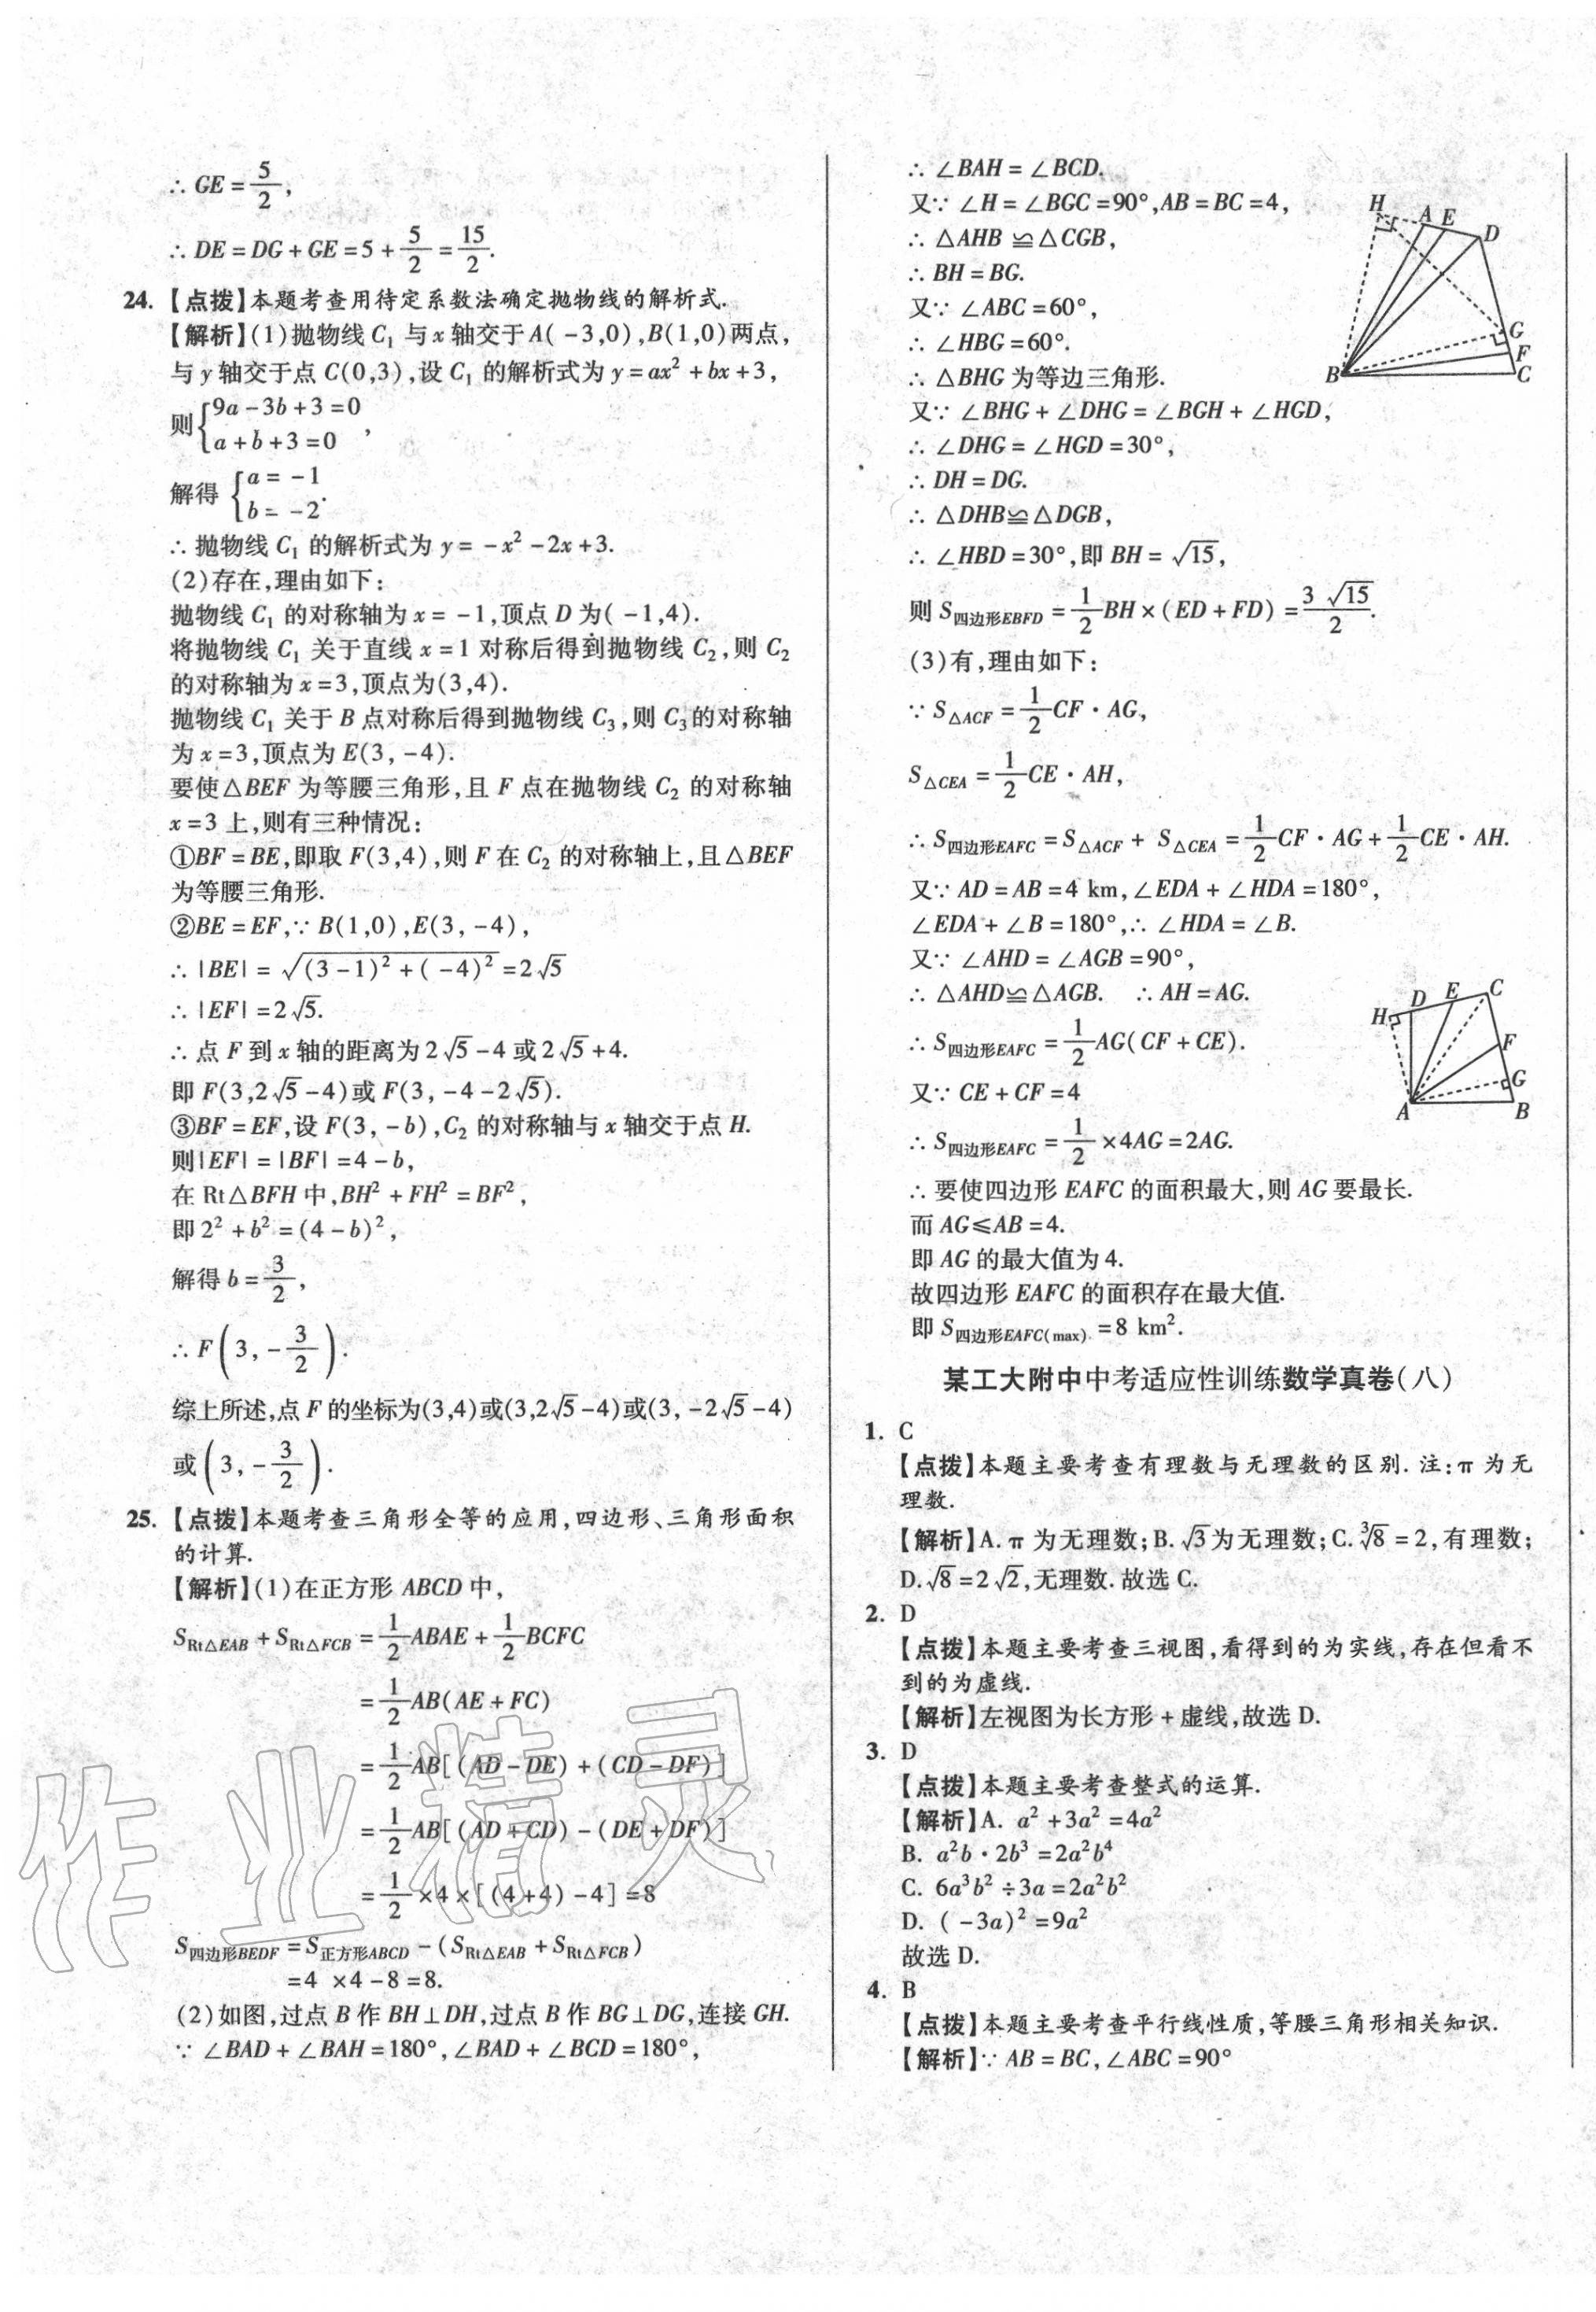 ∴ GE = 5/2,
∴ DE = DG + GE = 5 + 5/2 = 15/2.
24. 【点拨】本题考查用待定系数法确定抛物线的解析式.
【解析】(1)抛物线 C₁ 与 x 轴交于 A( -3,0),B(1,0)两点,
与 y 轴交于点 C(0,3),设 C₁ 的解析式为 y = ax² + bx +3,
则{9a -3b +3 =0
a + b +3 =0 ,
解得 {a = -1
b = -2.
∴ 抛物线 C₁ 的解析式为 y = -x² -2x +3.
(2)存在,理由如下:
抛物线 C₁ 的对称轴为 x = -1,顶点 D 为( -1,4).
将抛物线 C₁ 关于直线 x = 1 对称后得到抛物线 C₂,则 C₂
的对称轴为 x =3,顶点为(3,4).
抛物线 C₁ 关于 B 点对称后得到抛物线 C₃,则 C₃的对称轴
为 x =3,顶点为 E(3, -4).
要使△BEF 为等腰三角形,且 F 点在抛物线 C₂ 的对称轴
x =3 上,则有三种情况:
①BF = BE,即取 F(3,4),则 F 在 C₂ 的对称轴上,且△BEF
为等腰三角形.
②BE = EF,∵ B(1,0),E(3, -4),
∴ |BE| = √((3 -1)² + ( -4)²) =2√5
∴ |EF| =2√5.
∴ 点 F 到 x 轴的距离为 2√5 -4 或 2√5 +4.
即 F(3,2√5 -4)或 F(3, -4 -2√5).
③BF = EF,设 F(3, -b),C₂ 的对称轴与 x 轴交于点 H.
则|EF| = |BF| =4 -b,
在 Rt△BFH 中,BH² + FH² = BF²,
即 2² + b² = (4 -b)²,
解得 b = 3/2,
∴ F(3, -3/2).
综上所述,点 F 的坐标为(3,4)或(3,2√5 -4)或(3, -2√5 -4)
或(3, -3/2).
25. 【点拨】本题考查三角形全等的应用,四边形、三角形面积
的计算.
【解析】(1)在正方形 ABCD 中,
S Rt△EAB + S Rt△FCB = 1/2 ABAE + 1/2 BCFC
= 1/2 AB(AE + FC)
= 1/2 AB[(AD - DE) + (CD - DF)]
= 1/2 AB[(AD + CD) - (DE + DF)]
= 1/2 ×4 ×[(4 +4) -4] =8
S四边形BEDF = S正方形ABCD - (S Rt△EAB + S Rt△FCB)
=4 ×4 -8 =8.
(2)如图,过点 B 作 BH⊥DH,过点 B 作 BG⊥DG,连接 GH.
∵ ∠BAD + ∠BAH =180°,∠BAD + ∠BCD =180°,
∴ ∠BAH = ∠BCD.
又∵ ∠H = ∠BGC =90°,AB = BC =4,
∴ △AHB ≌△CGB,
∴ BH = BG.
又∵ ∠ABC =60°,
∴ ∠HBG =60°.
∴ △BHG 为等边三角形.
又∵ ∠BHG + ∠DHG = ∠BGH + ∠HGD,
∴ ∠DHG = ∠HGD =30°,
∴ DH = DG.
∴ △DHB≌△DGB,
∴ ∠HBD =30°,即 BH = √15,
则 S四边形EBFD = 1/2 BH × (ED + FD) = 3√15/2.
H A E D G F C B
(3)有,理由如下:
∵ S△ACF = 1/2 CF · AG,
S△CEA = 1/2 CE · AH,
∴ S四边形EAFC = S△ACF + S△CEA = 1/2 CF · AG + 1/2 CE · AH.
又∵ AD = AB =4 km,∠EDA + ∠HDA =180°,
∠EDA + ∠B =180°,∴ ∠HDA = ∠B.
又∵ ∠AHD = ∠AGB =90°,
∴ △AHD≌△AGB. ∴ AH = AG.
∴ S四边形EAFC = 1/2 AG(CF + CE).
又∵ CE + CF =4
∴ S四边形EAFC = 1/2 ×4AG =2AG.
H D E C F G B A
∴ 要使四边形 EAFC 的面积最大,则 AG 要最长.
而 AG≤AB =4.
即 AG 的最大值为 4.
故四边形 EAFC 的面积存在最大值.
即 S四边形EAFC(max) =8 km².
某工大附中中考适应性训练数学真卷(八)
1. C
【点拨】本题主要考查有理数与无理数的区别. 注:π 为无
理数.
【解析】A. π 为无理数;B. √3为无理数;C. ³√8 =2,有理数;
D. √8 =2√2,无理数. 故选 C.
2. D
【点拨】本题主要考查三视图,看得到的为实线,存在但看不
到的为虚线.
【解析】左视图为长方形 + 虚线,故选 D.
3. D
【点拨】本题主要考查整式的运算.
【解析】A. a² +3a² =4a²
B. a²b · 2b³ =2a²b⁴
C. 6a³b² ÷3a =2a²b²
D. ( -3a)² =9a²
故选 D.
4. B
【点拨】本题主要考查平行线性质,等腰三角形相关知识.
【解析】∵ AB = BC, ∠ABC =90°
作业精灵